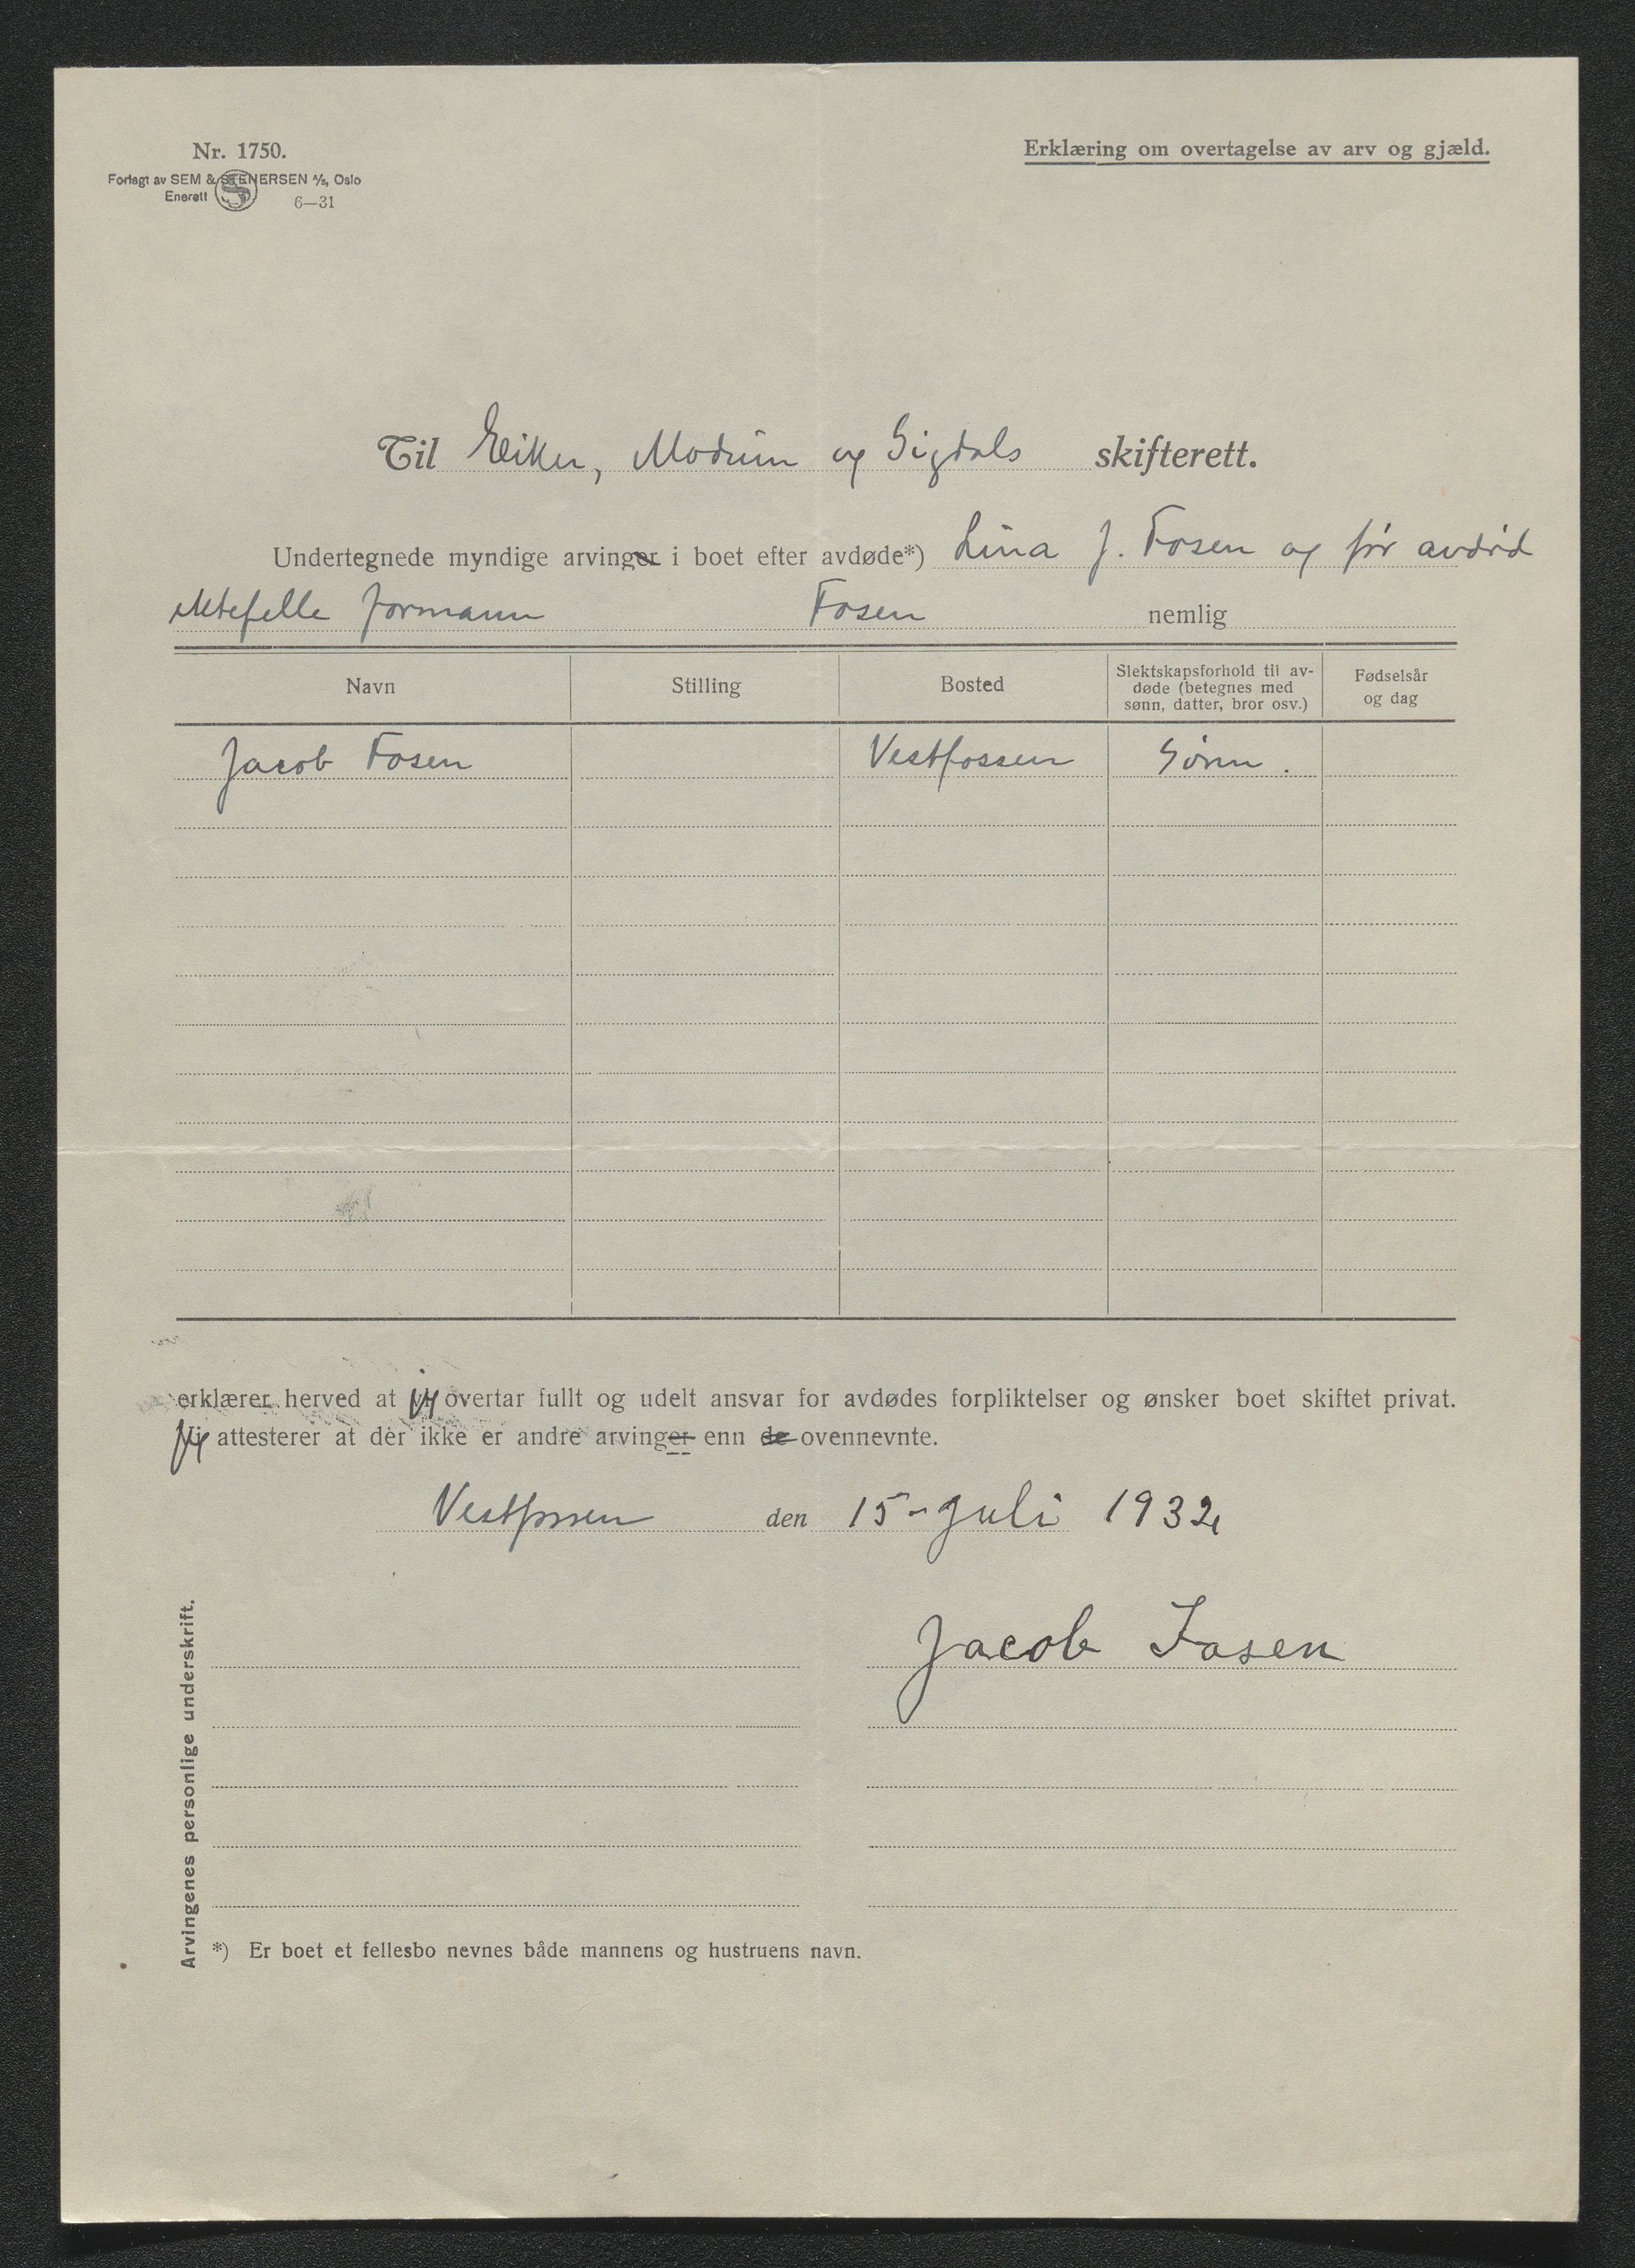 Nr. 1750.
Erklæring om overtagelse av arv og gjæld.
Forlagt av SEM & STENERSEN A/S, Oslo
Enerett 6—31
Til Eiker, Modum og Sigdals skifterett.
Undertegnede myndige arvinger i boet efter avdøde*) Lina J. Fosen og før avdød
ektefelle Formann Fosen nemlig
Navn Stilling Bosted Slektskapsforhold til avdøde (betegnes med sønn, datter, bror osv.) Fødselsår og dag
Jacob Fosen Vestfossen Sønn.
erklærer herved at jeg overtar fullt og udelt ansvar for avdødes forpliktelser og ønsker boet skiftet privat.
Jeg attesterer at der ikke er andre arvinger enn de ovennevnte.
Vestfossen den 15-juli 1932
Jacob Fosen
Arvingenes personlige underskrift.
*) Er boet et fellesbo nevnes både mannens og hustruens navn.